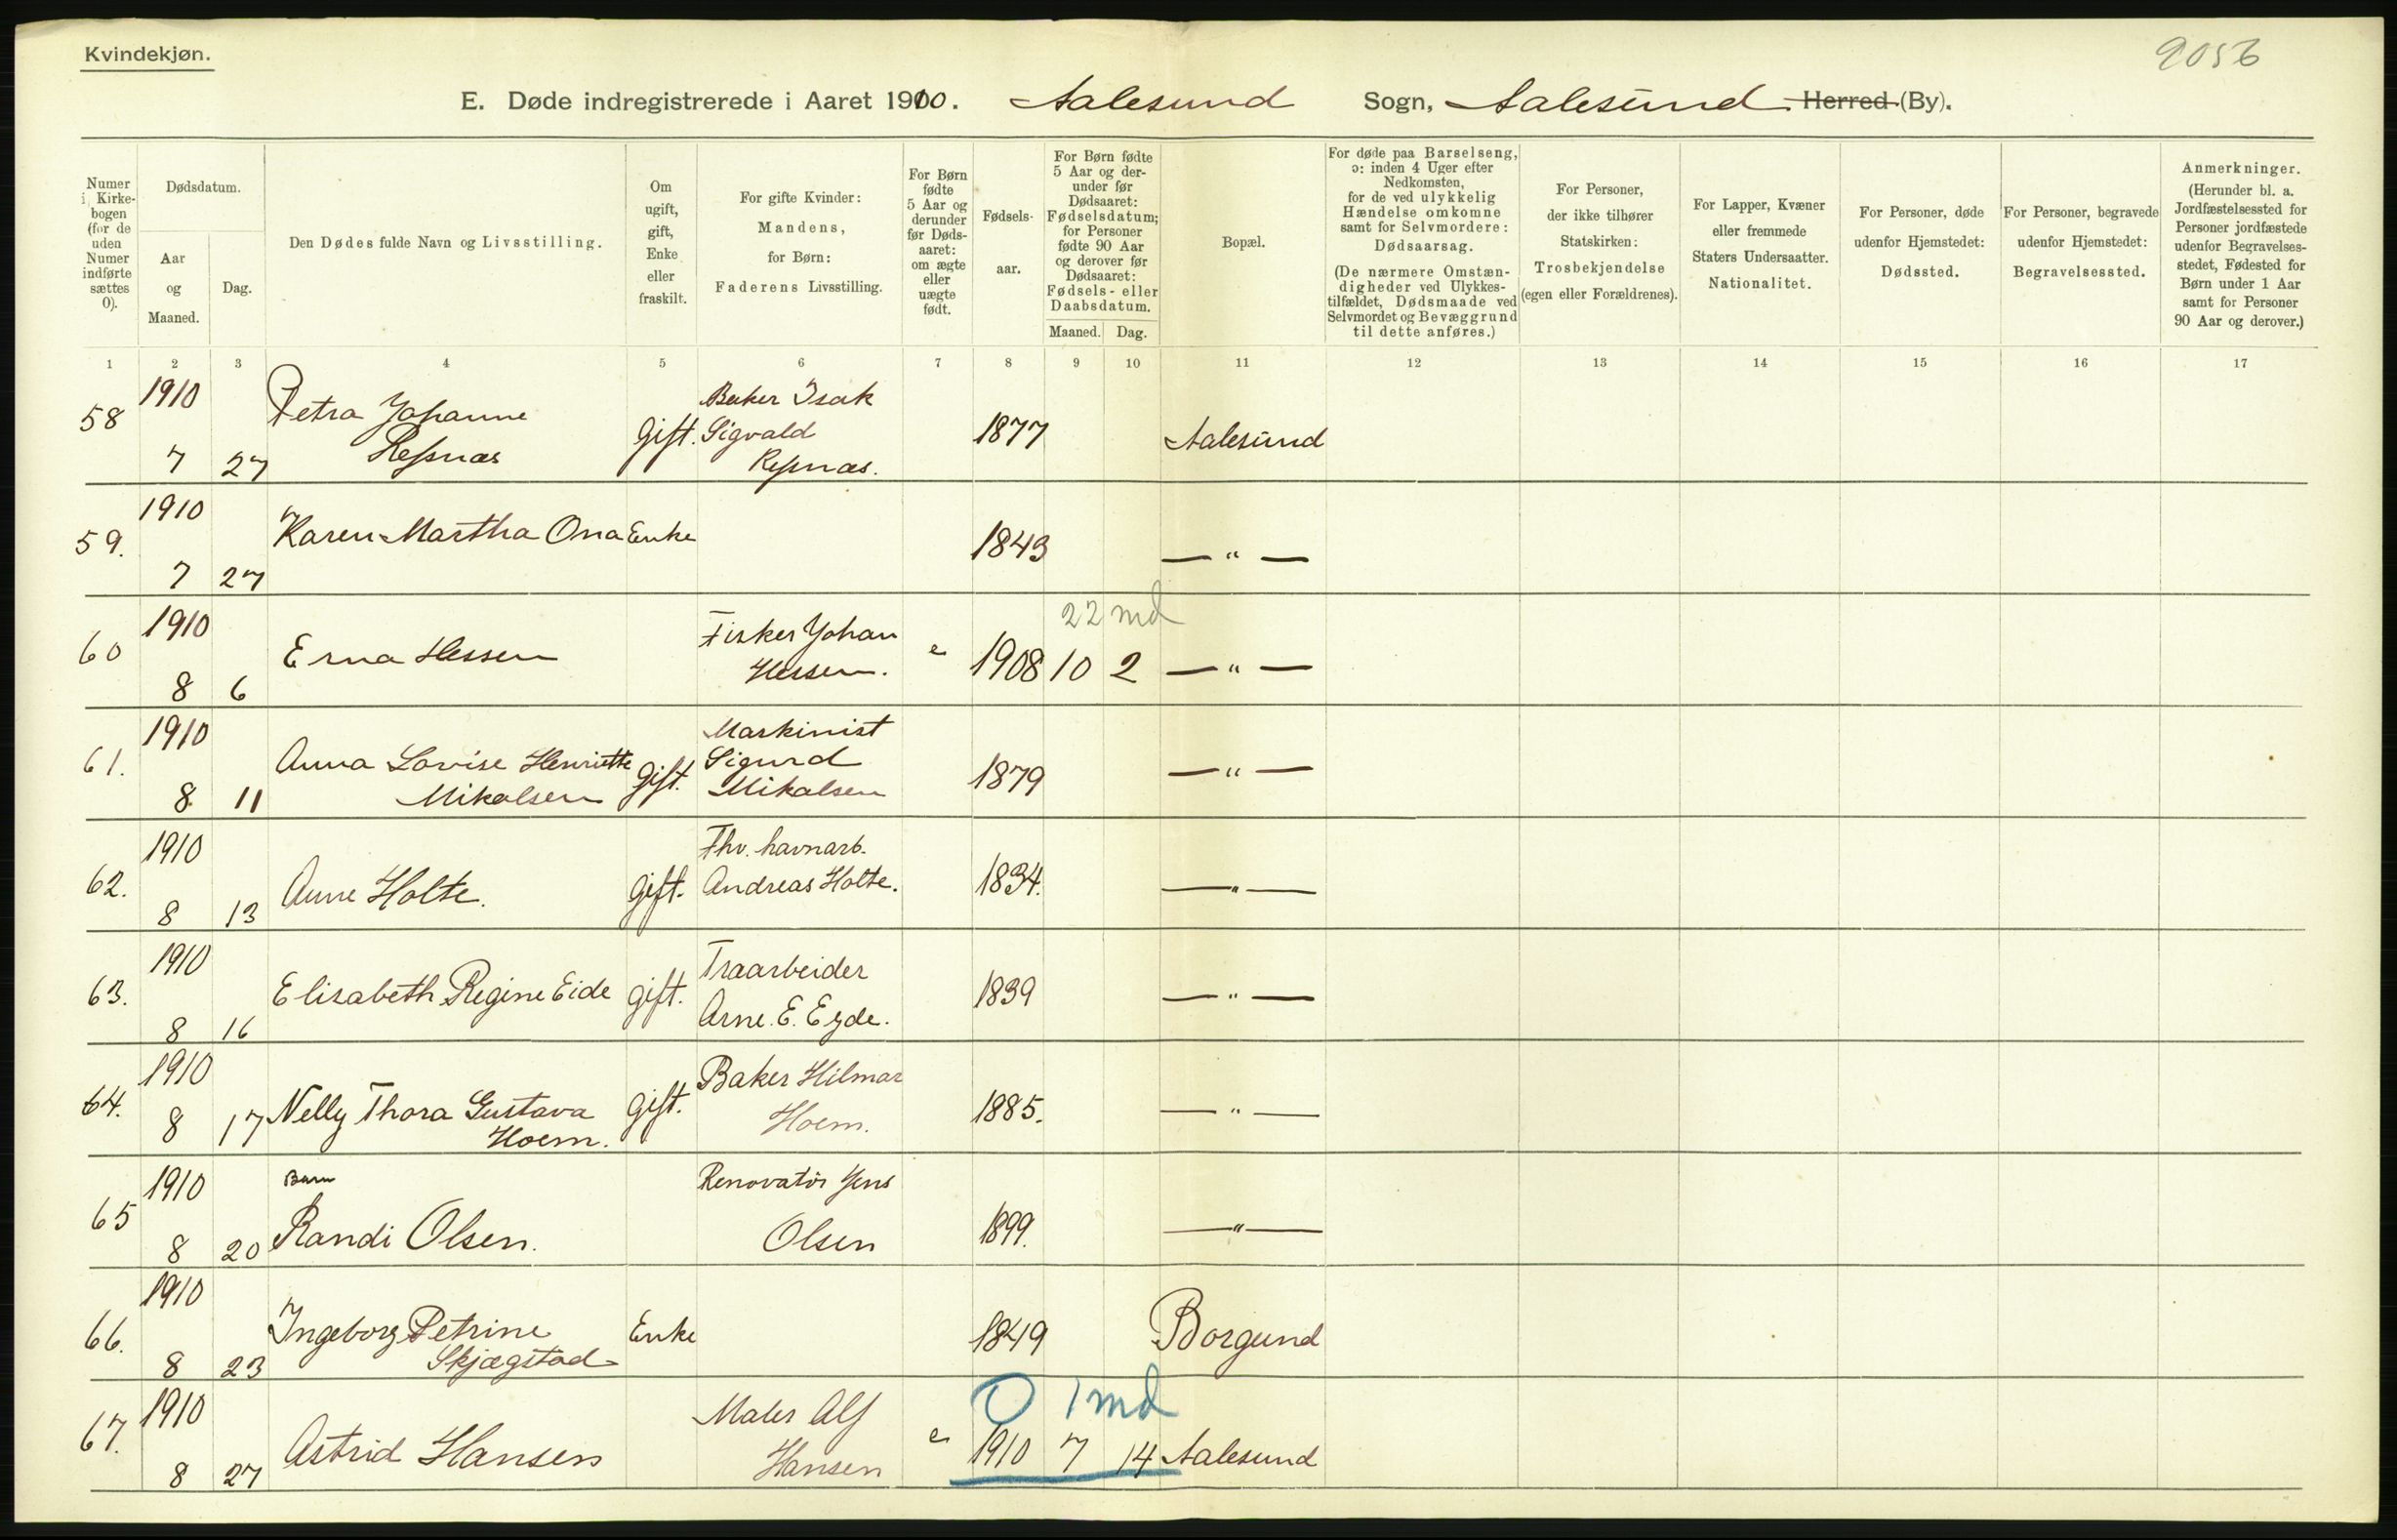 Kvindekjøn.
9056
E. Døde indregistrerede i Aaret 1910. Aalesund Sogn, Aalesund Herred (By).
Numer i Kirkebogen (for de uden Numer indførte sættes 0).
Dødsdatum.
Aar og Maaned.
Dag.
Den Dødes fulde Navn og Livsstilling.
Om ugift, gift, Enke eller fraskilt.
For gifte Kvinder: Mandens, for Børn: Faderens Livsstilling.
For Børn fødte 5 Aar og derunder før Dødsaaret: om ægte eller uægte født.
Fødselsaar.
For Børn fødte 5 Aar og derunder før Dødsaaret: Fødselsdatum; for Personer fødte 90 Aar og derover før Dødsaaret: Fødsels- eller Daabsdatum.
Maaned. Dag.
Bopæl.
For døde paa Barselseng, ɔ: inden 4 Uger efter Nedkomsten, for de ved ulykkelig Hændelse omkomne samt for Selvmordere: Dødsaarsag.
(De nærmere Omstændigheder ved Ulykkestilfældet, Dødsmaade ved Selvmordet og Bevæggrund til dette anføres.)
For Personer, der ikke tilhører Statskirken: Trosbekjendelse (egen eller Forældrenes).
For Lapper, Kvæner eller fremmede Staters Undersaatter. Nationalitet.
For Personer, døde udenfor Hjemstedet: Dødssted.
For Personer, begravede udenfor Hjemstedet: Begravelsessted.
Anmerkninger.
(Herunder bl. a. Jordfæstelsessted for Personer jordfæstede udenfor Begravelsesstedet, Fødested for Børn under 1 Aar samt for Personer 90 Aar og derover.)
1 2 3 4 5 6 7 8 9 10 11 12 13 14 15 16 17
58 1910 7 27 Petra Johanne Ressnæs Gift. Baker Isak Sigvald Ressnæs. 1877 Aalesund
59. 1910 7 27 Karen Martha Ona Enke 1843 — " —
22 md
60 1910 8 6 Erna Hessen Fisker Johan Hessen. e 1908 10 2 — " —
61. 1910 8 11 Anna Lovise Henriette Mikalsen Gift. Maskinist Sigurd Mikalsen 1879 — " —
62. 1910 8 13 Anne Holte. Gift. Fhv. havnarb. Andreas Holte. 1834. — " —
63. 1910 8 16 Elisabeth Regine Eide Gift. Træarbeider Arne. E. Eyde. 1839 — " —
64. 1910 8 17 Nelly Thora Gustava Hoem. Gift. Baker Hilmar Hoem. 1885. — " —
65 1910 8 20 Barn Randi Olsen. Renovatör Jens Olsen 1899. — " —
66. 1910 8 23 Ingeborg Petrine Skjægstad Enke 1849 Borgund
0 1 md
67. 1910 8 27 Astrid Hansen Maler Alf Hansen e 1910 7 14 Aalesund